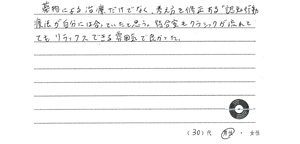 薬物による治療だけでなく、考え方を修正する「認知行動
療法が自分には合っていたと思う。待合室もクラシックが流れて
てもリラックスできる雰囲気で良かった。
(30)代 男性・女性